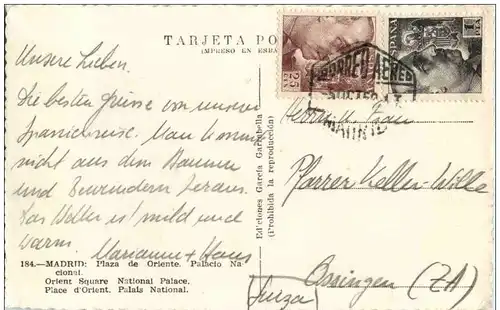 TARJETA PO
(IMPRESO EN ESPA
Unsere Lieben.
Die besten Grüsse von unserer
Spanienreise. Man kommt
nicht aus dem Staunen
und Bewundern heraus.
Das Wetter ist mild und
warm. Marianne + Hans
184.—MADRID: Plaza de Oriente. Palacio Na-
cional.
Orient Square National Palace.
Place d'Orient. Palais National.
Ediciones García Garrabella
(Prohibida la reproducción)
25
ESPAÑA
1
CORREO AEREO
MADRID
Herrn u. Frau
Pfarrer Keller-Wille
Ossingen (ZH)
(Suiza)